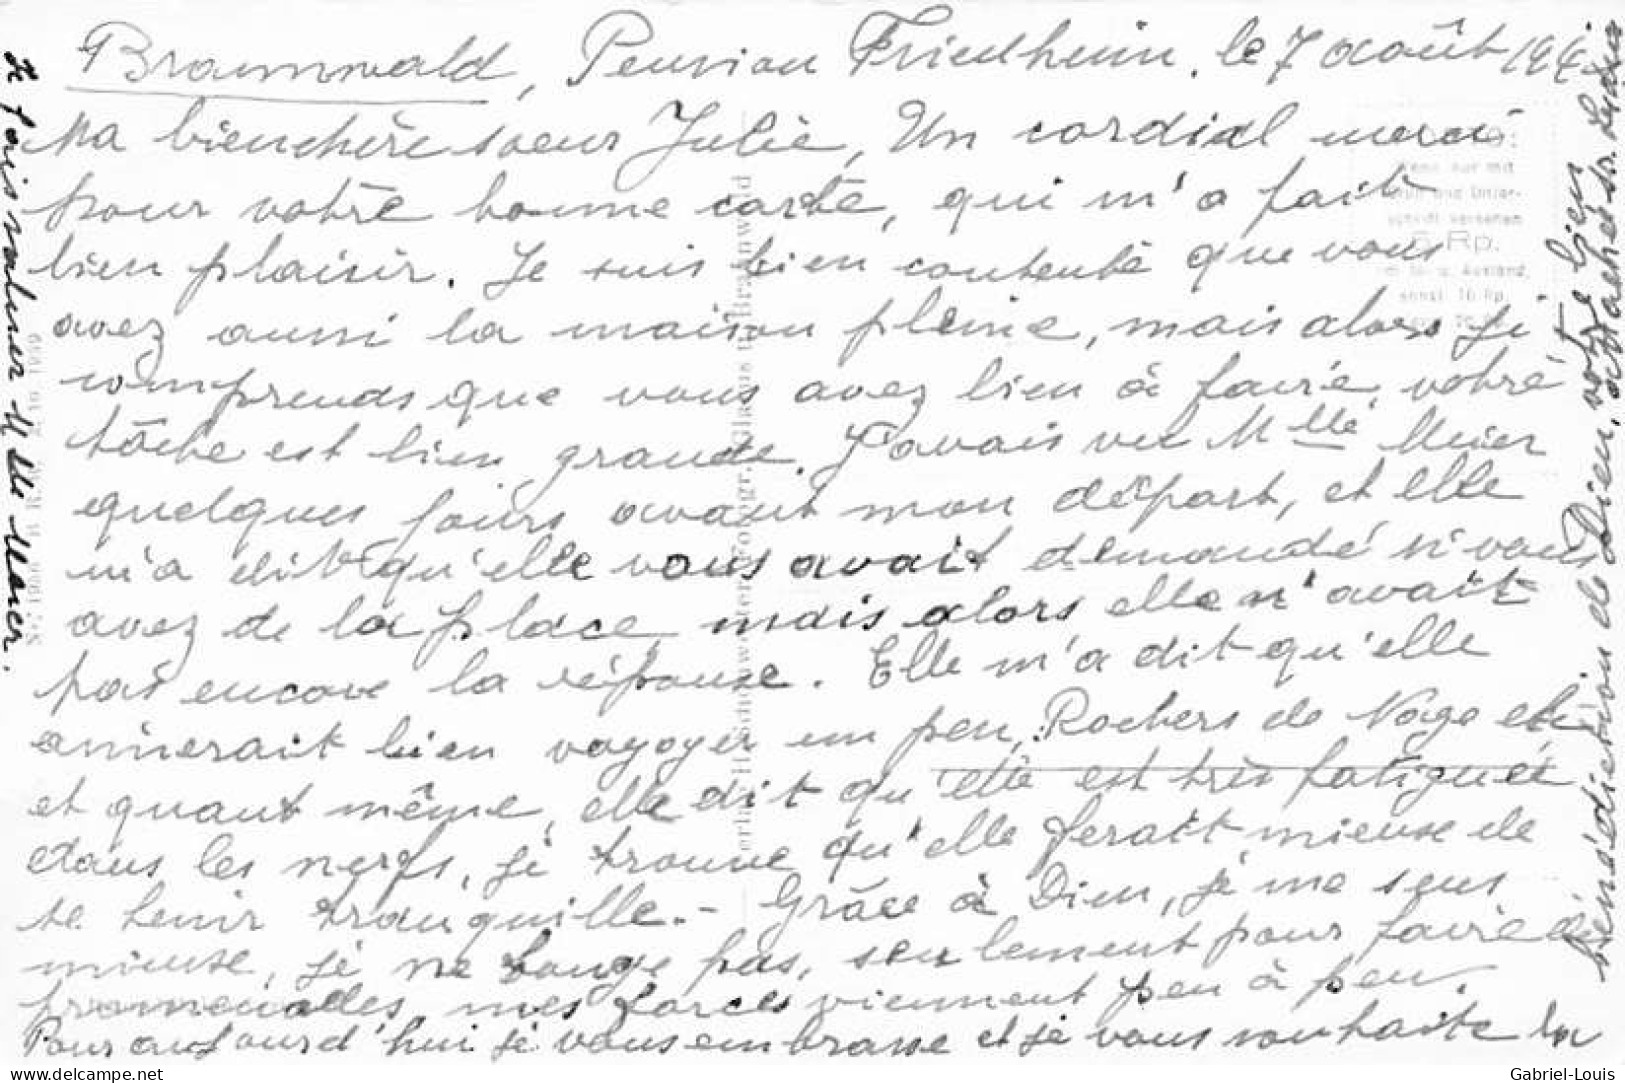 Braunwald, Pension Friedheim, le 7 août 194
Ma bienchère soeur Julie, Un cordial merci
pour votre bonne carte, qui m'a fait
bien plaisir. Je suis bien contente que vous
avez aussi la maison pleine, mais alors je
comprends que vous avez bien à faire, votre
tâche est bien grande. J'avais vu Mlle Meier
quelques jours avant mon départ, et elle
m'a dit qu'elle vous avait demandé si vous
avez de la place, mais alors elle n'avait
pas encore la réponse. Elle m'a dit qu'elle
aimerait bien voyager un peu, Rochers de Naye etc
et quant même, elle dit qu'elle est très fatiguée
dans les nerfs, je trouve qu'elle ferait mieuse de
se tenir tranquille.- Grâce à Dieu, je me sens
mieuse, je ne bouge pas, seulement pour faire de
promenades, mes forces viennent peu à peu.
Pour aujourd'hui je vous embrasse et je vous souhaite la
bénédiction de Dieu, votre bien
attachée sr. Lydia
fais saluer Mlle Maier.
5 Rp.
delivery-hotels
delcampe.net
Gabriel-Louis